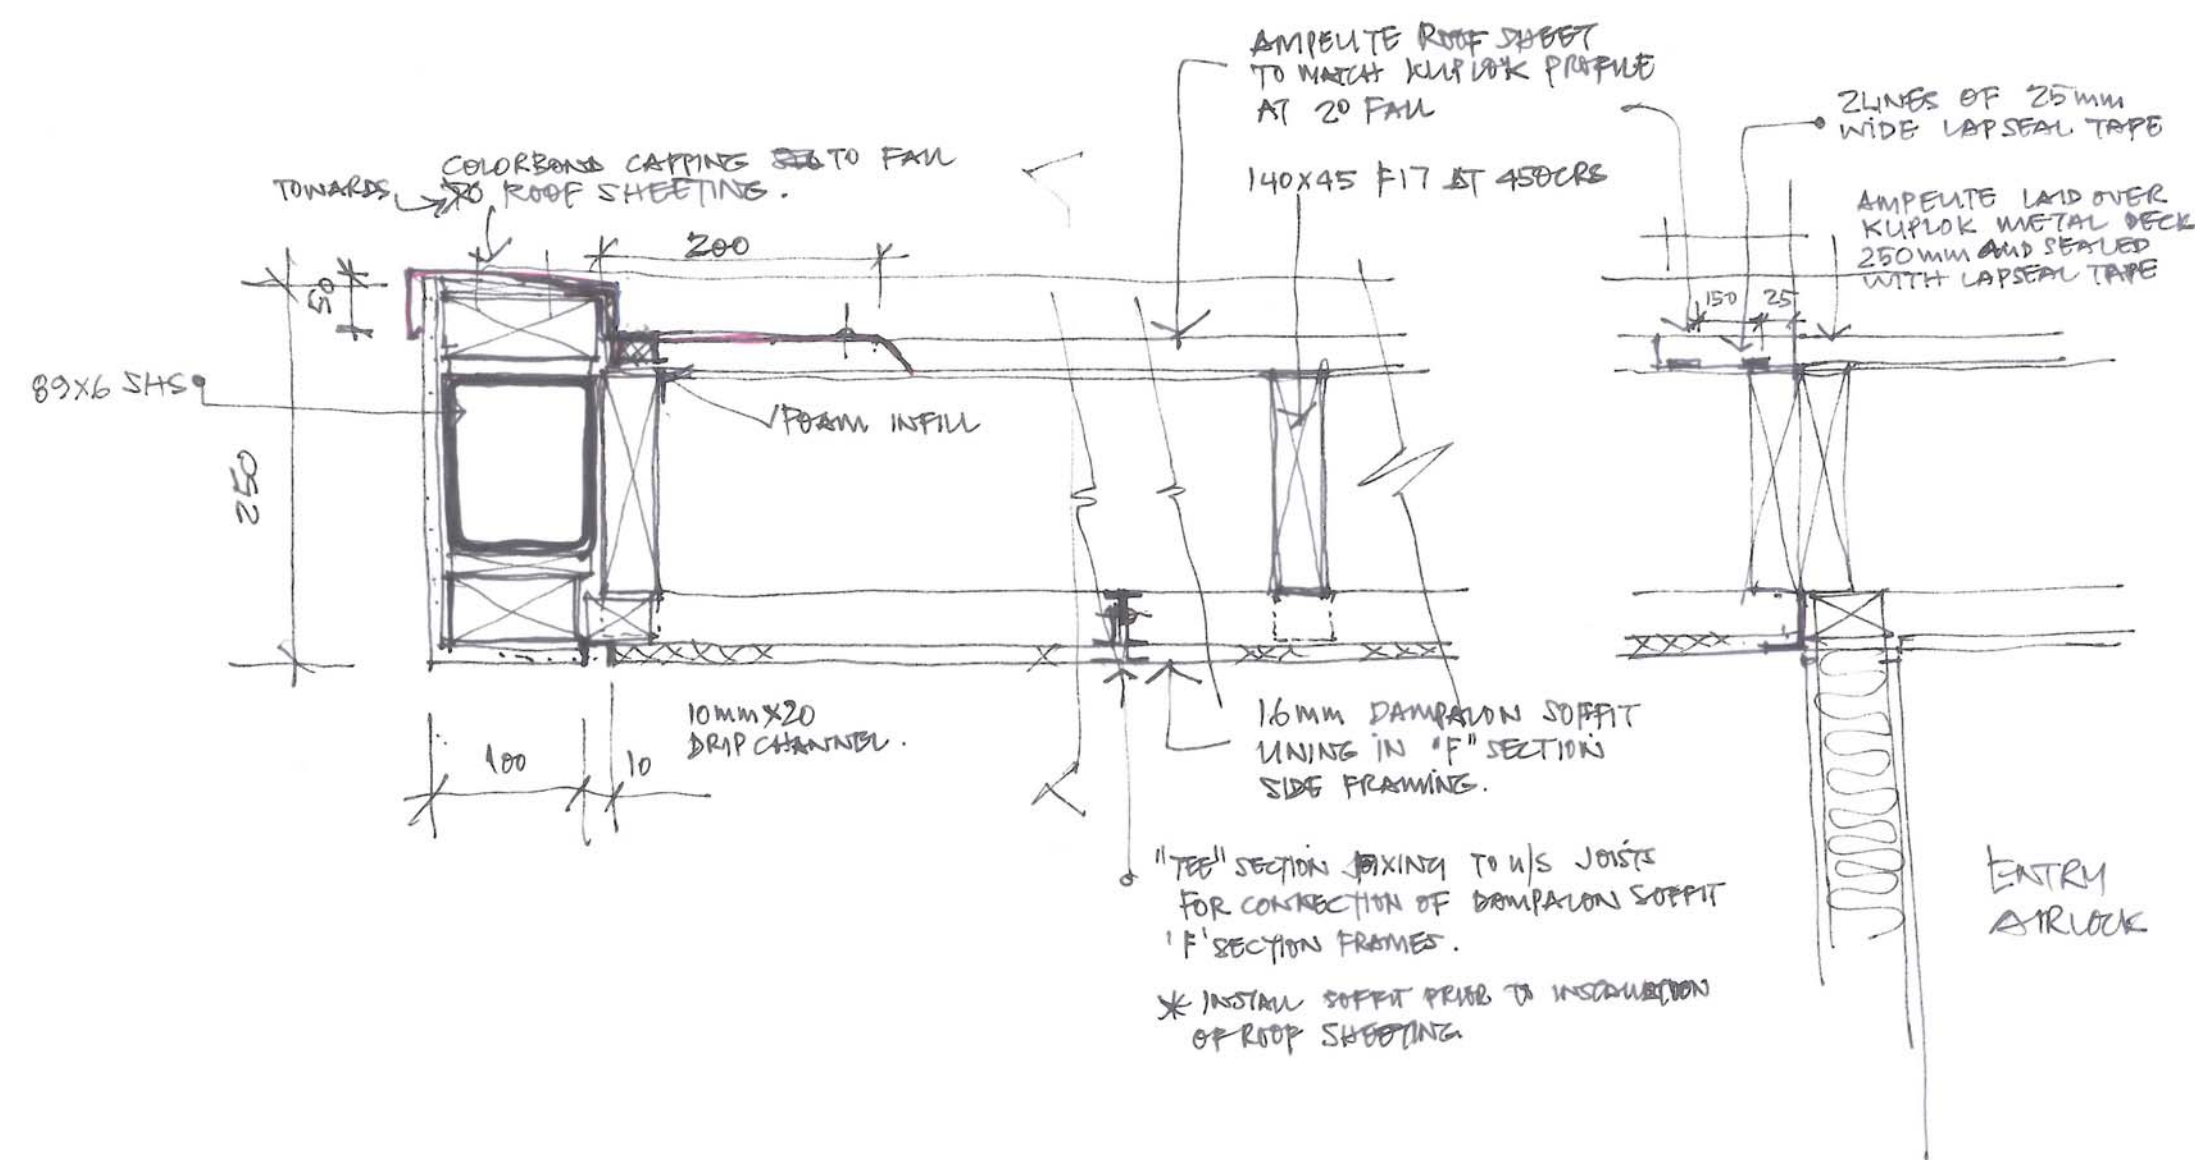 AMPELITE ROOF SHEET
TO MATCH KLIPLOK PROFILE
AT 2° FALL
2 LINES OF 25mm
WIDE LAPSEAL TAPE
COLORBOND CAPPING TO FALL
TOWARDS
ROOF SHEETING.
140X45 F17 AT 450CRS
AMPELITE LAID OVER
KLIPLOK METAL DECK
250mm AND SEALED
WITH LAPSEAL TAPE
200
50
150
25
89X6 SHS
FOAM INFILL
250
10mmX20
DRIP CHANNEL.
100
10
16mm DAMPALON SOFFIT
LINING IN "F" SECTION
SIDE FRAMING.
"TEE" SECTION FIXING TO U/S JOISTS
FOR CONNECTION OF DAMPALON SOFFIT
'F' SECTION FRAMES.
* INSTALL SOFFIT PRIOR TO INSTALLATION
OF ROOF SHEETING.
ENTRY
AIRLOCK